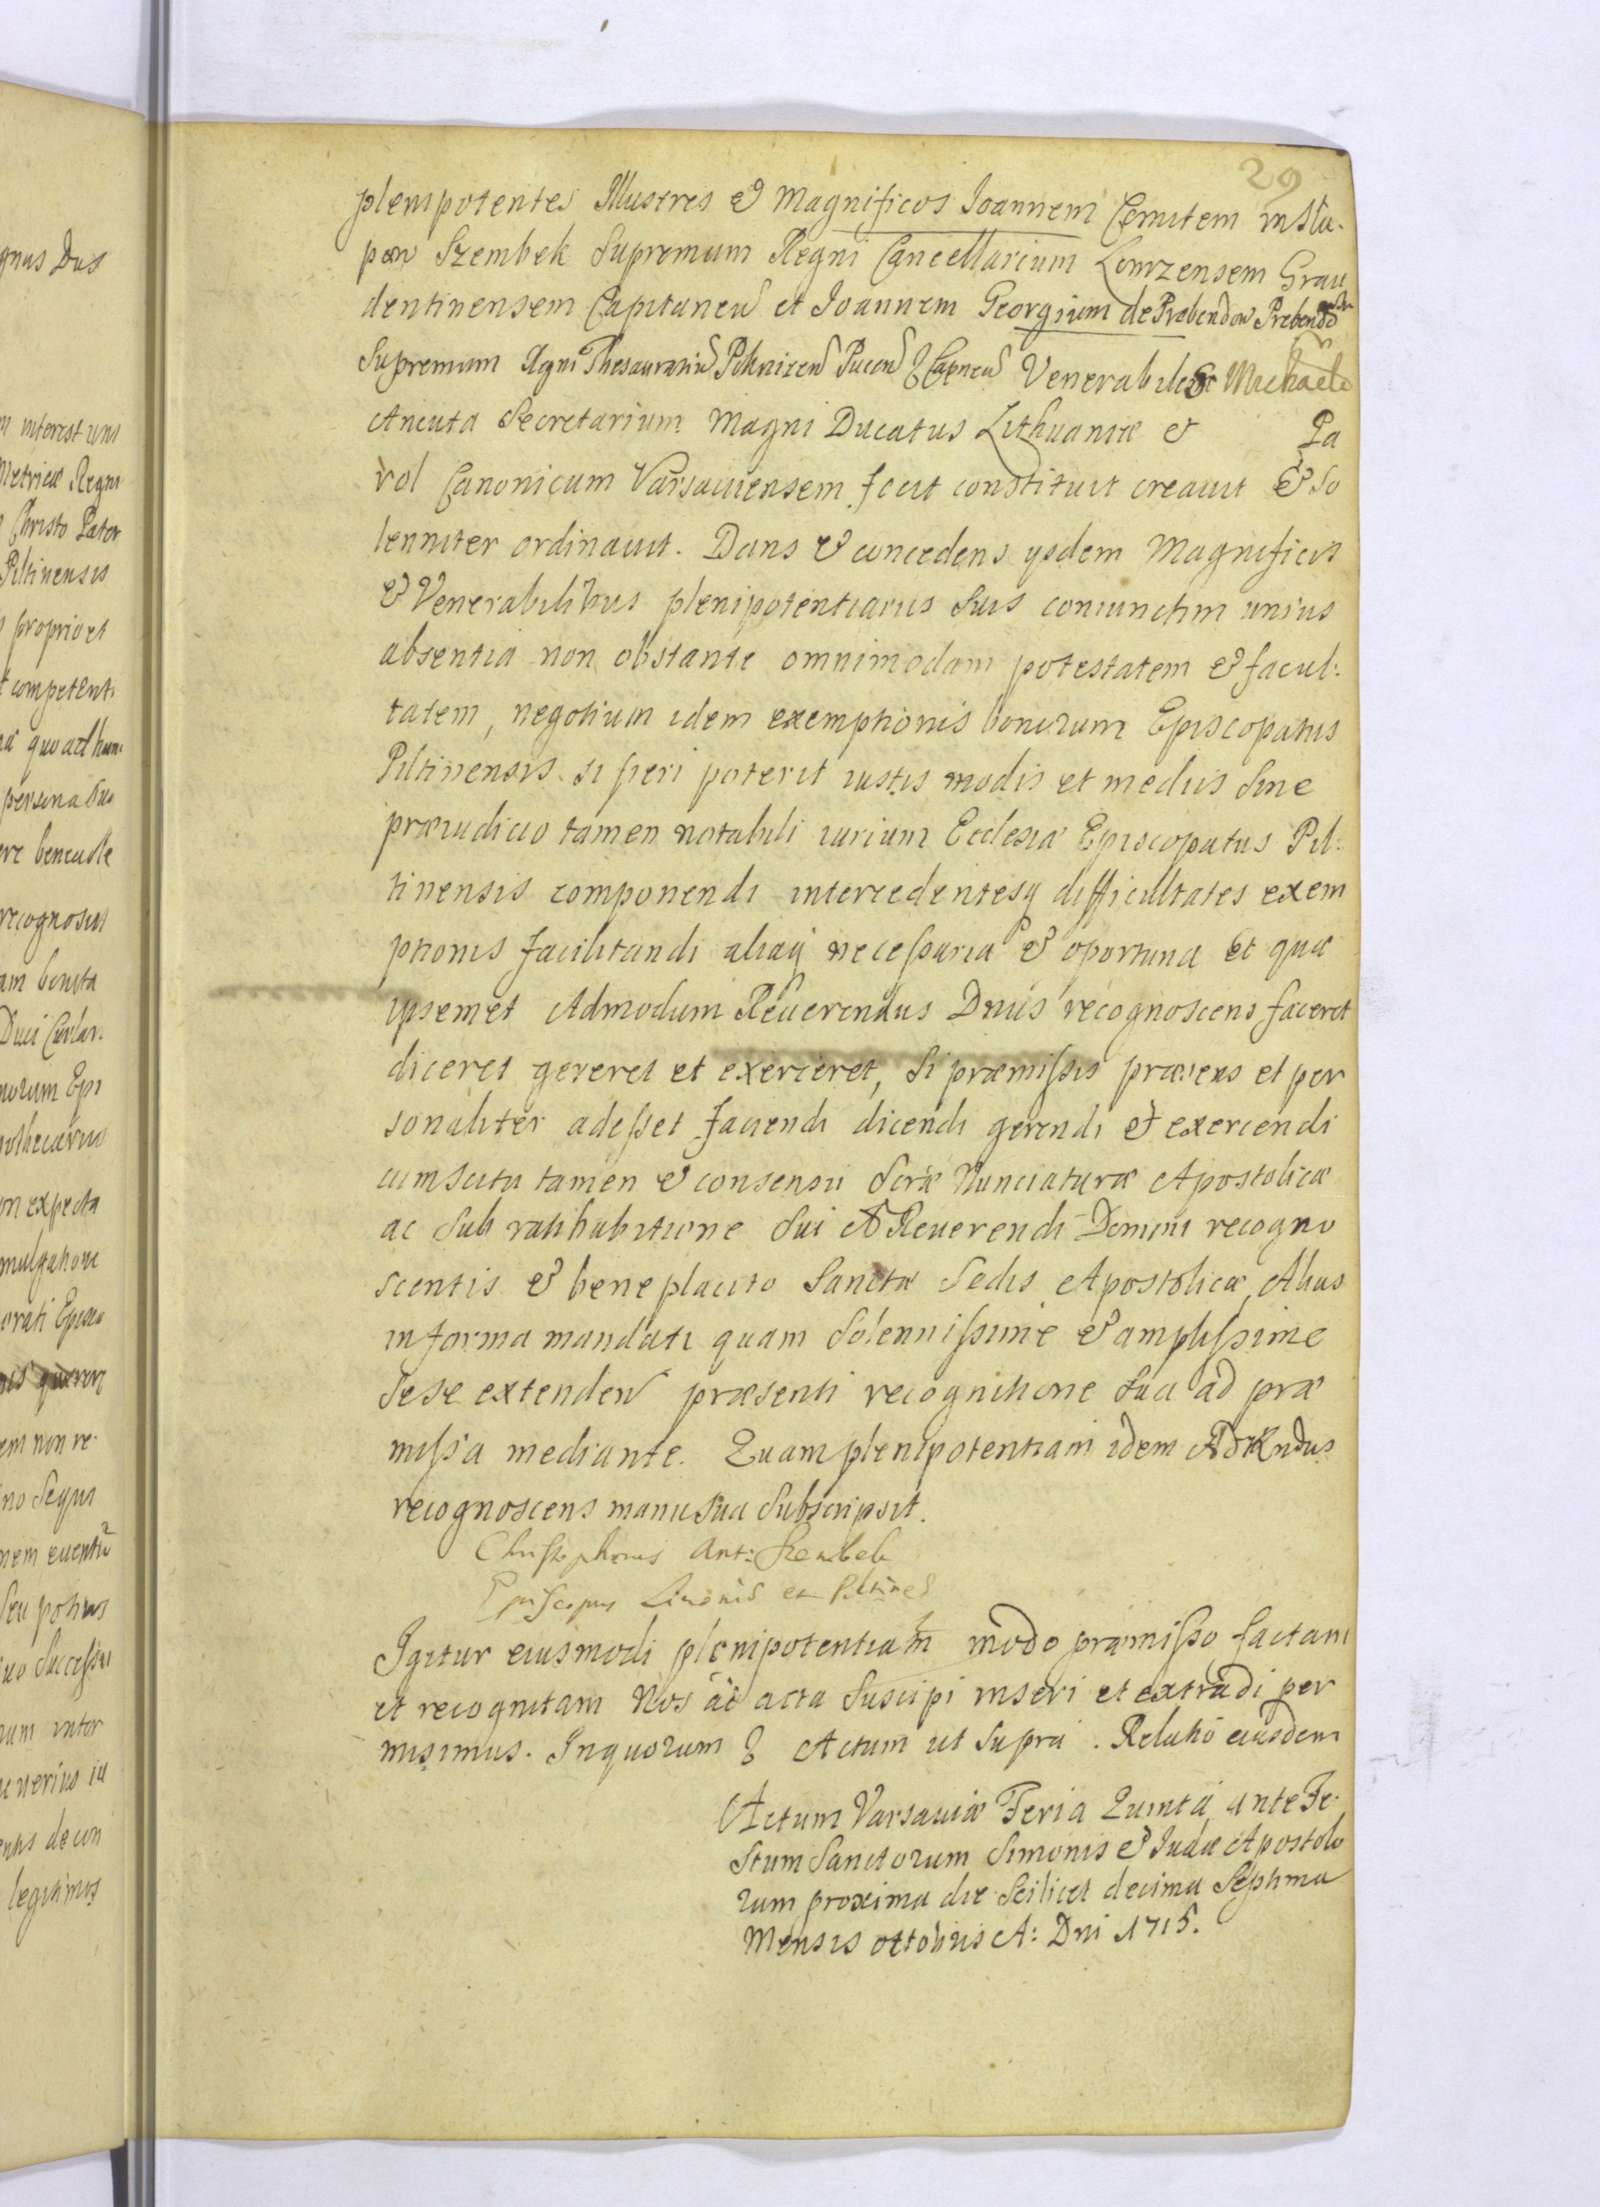 29
plenipotentes Illustres & Magnificos Joannem Comitem in Slu-
pow Szembek Supremum Regni Cancellarium Lomzensem Grau
dentinensem Capitaneu et Joannem Georgium de Prebendow Prebendo
Supremum Regni Thesaurariu Venerabiles Michaele
Ancuta Secretarium Magni Ducatus Lithuaniæ & Pa
rol Canonicum Varsauiensem fecit constituit creauit & So
lenniter ordinauit. Dans & concedens ysdem Magnificis
& Venerabilibus plenipotentiariis Suis coniunctim unius
absentia non obstante omnimodam potestatem & facul:
tatem, negotium idem exemptionis bonorum Episcopatus
Piltinensis si fieri poterit iustis modis et mediis Sine
præiudicio tamen notabili iurium Ecclesiæ Episcopatus Pil:
tinensis componendi intercedentesq difficultates exem
ptionis facilitandi aliaq necessaria & oportuna et quæ
ipsemet Admodum Reuerendus Dnus recognoscens faceret
diceret gereret et exerceret, Si præmissis præsens et per
sonaliter adesset faciendi dicendi gerendi & exercendi
cum scitu tamen & consensu Scræ Nunciaturæ Apostolicæ
ac Sub ratihabitione Sui A Reuerendi Domini recogno
scentis & beneplacito Sanctæ Sedis Apostolicæ, Alias
in forma mandati quam Solennissime & amplissime
Sese extenden præsenti recognitione Sua ad præ
missa mediante. Quam plenipotentiam idem AdRndus
recognoscens manu Sua Subscripsit.
Christophorus Ant: Szembek
Episcopus Liuonis et Piltines
Igitur eiusmodi plenipotentiam modo præmisso factam
et recognitam Nos ad acta Suscipi inseri et extradi per
misimus. In quorum Actum ut Supra. Relatio eiusdem
Actum Varsauiæ Feria Quinta ante Fe-
stum Sanctorum Simonis & Iudæ Apostolo
rum proxima die Scilicet decima Septima
Mensis octobris A: Dni 1715.
gnus Dus
m interest uni
Metricæ Regni
Christo Pater
Piltinensis
proprio et
competenti
quo ad hunc
persona Sua
ere beneuole
recognosci
am bonita
Duci Curlan-
norum Epi
on expecta
mulgatione
orati Episco
em non re-
no Sequi
nem euentu
Seu potius
uo Successu
rum inter
ntis de con
legitimos